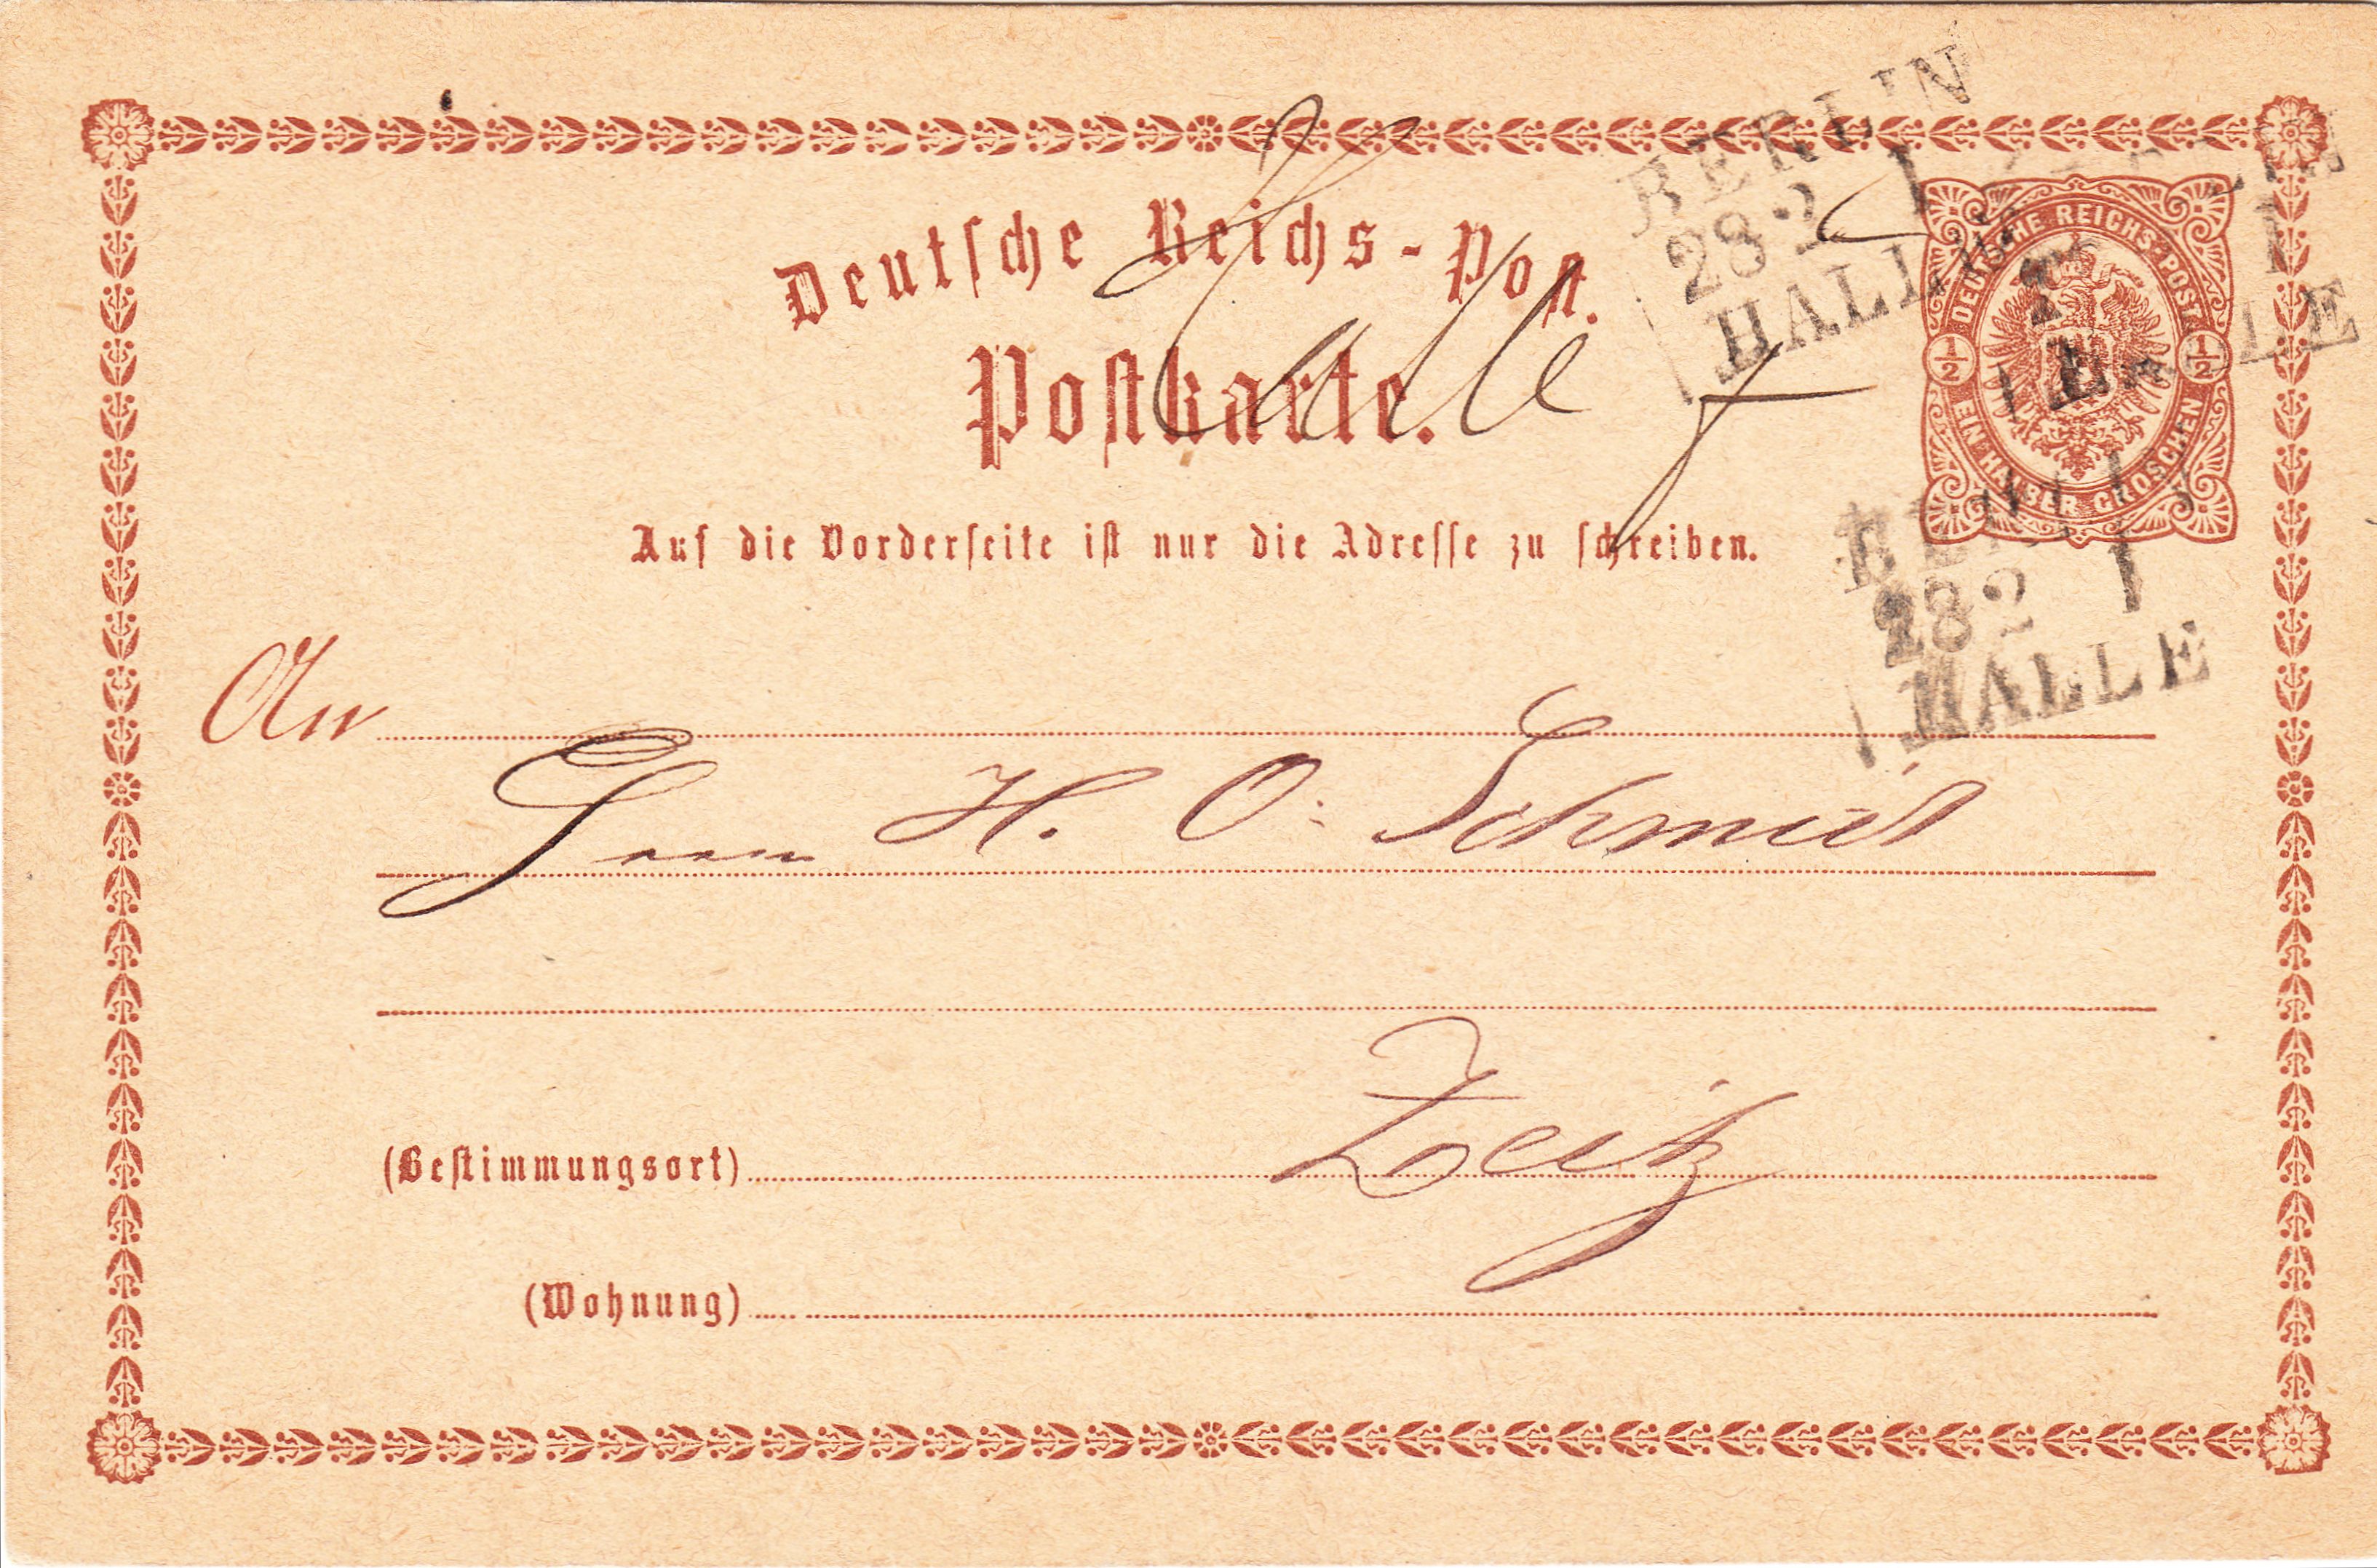 Deutsche Reichs-Post.
Postkarte.
Halle
Auf die Vorderseite ist nur die Adresse zu schreiben.
BERLIN
28 2 I
HALLE
DEUTSCHE REICHS-POST
1/2 1/2
EIN HALBER GROSCHEN
I
HALLE
BERLIN
28 2 I
HALLE
An
Herrn H. O. Schmidt
(Bestimmungsort) Zeitz
(Wohnung)